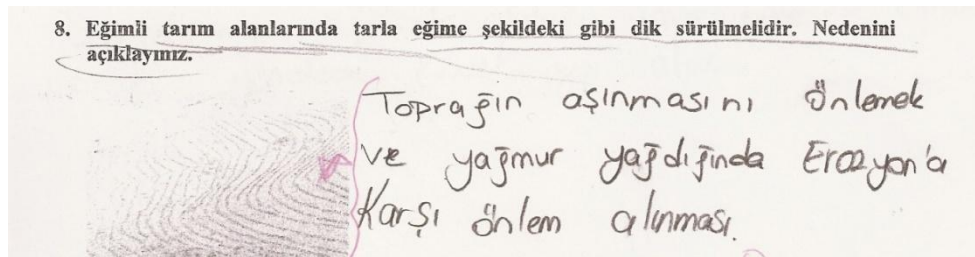 8. Eğimli tarım alanlarında tarla eğime şekildeki gibi dik sürülmelidir. Nedenini
açıklayınız.
Toprağın aşınmasını önlemek
ve yağmur yağdığında Erozyon'a
Karşı önlem alınması.